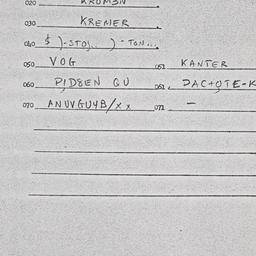 020 KROM3N
030 KREMER
040 $ )-STOJ.. ) - TON...
050 VOG 051 KANTER
060 PIDSEN GU 061
070 ANUVGU4B/xx 071 -